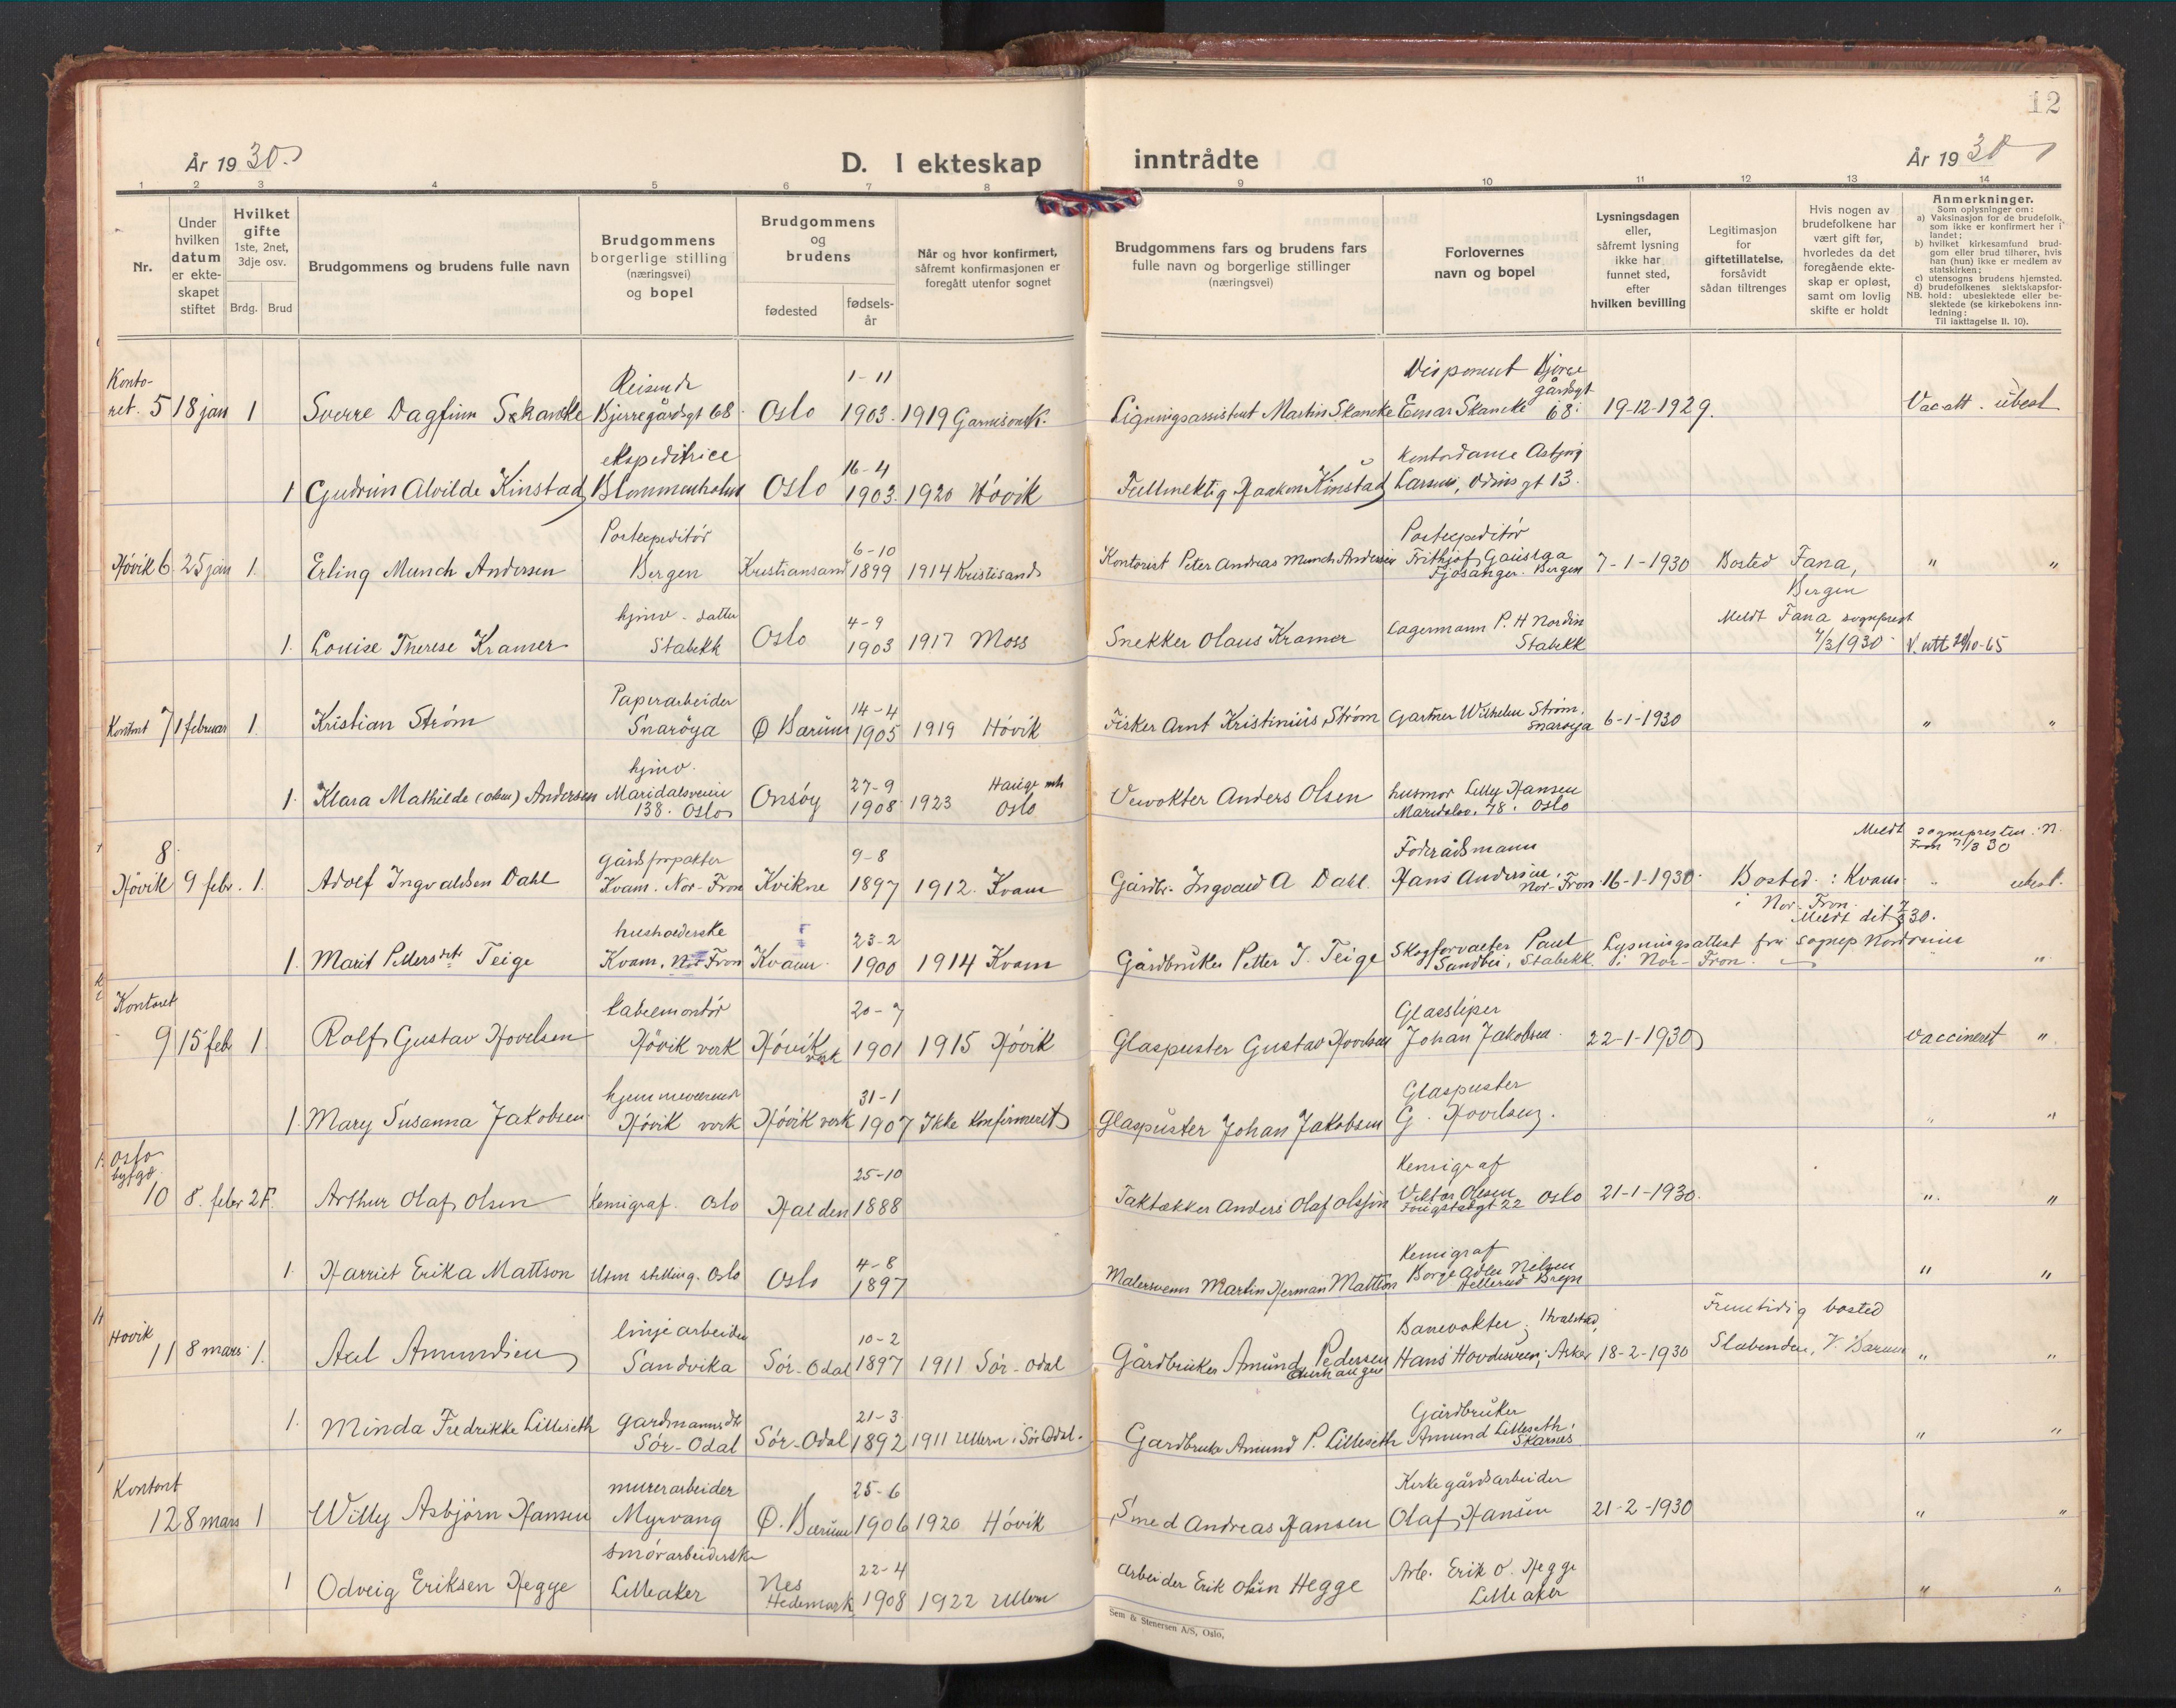 12
År 1930.
D. I ekteskap inntrådte
År 1930
1 2 3 4 5 6 7 8 9 10 11 12 13 14
Nr.
Under hvilken datum er ekteskapet stiftet
Hvilket gifte 1ste, 2net, 3dje osv. Brdg. Brud
Brudgommens og brudens fulle navn
Brudgommens borgerlige stilling (næringsvei) og bopel
Brudgommens og brudens fødested fødselsår
Når og hvor konfirmert, såfremt konfirmasjonen er foregått utenfor sognet
Brudgommens fars og brudens fars fulle navn og borgerlige stillinger (næringsvei)
Forlovernes navn og bopel
Lysningsdagen eller, såfremt lysning ikke har funnet sted, efter hvilken bevilling
Legitimasjon for giftetillatelse, forsåvidt sådan tiltrenges
Hvis nogen av brudefolkene har vært gift før, hvorledes da det foregående ekteskap er opløst, samt om lovlig skifte er holdt
Anmerkninger.
Som oplysninger om:
a) Vaksinasjon for de brudefolk, som ikke er konfirmert her i landet;
b) hvilket kirkesamfund brudgom eller brud tilhører, hvis han (hun) ikke er medlem av statskirken;
c) utensogns brudens hjemsted.
d) brudefolkenes slektskapsforhold: ubeslektede eller beslektede (se kirkebokens innledning:
NB. Til iakttagelse II. 10).
Kontoret. 5 18 jan 1 Sverre Dagfinn Skancke Reisende Bjerregårdsgt 68 Oslo 1-11 1903 1919 Garnisonsk. Ligningsassistent Martin Skancke Disponent Einar Skancke Bjerregårdsgt 68 19-12-1929. Vac att. ubesl
1 Gudrun Alvilde Kinstad ekspeditrice Blommenholm Oslo 16-4 1903 1920 Høvik Fullmektig Haakon Kinstad Kontordame Asbjørg Larsen, Odins gt 13.
Høvik 6 25 jan 1. Erling Munch Andersen Postexpeditør Bergen Kristiansand 6-10 1899 1914 Kristisand Kontorist Peter Andreas Munch Andersen Postexpeditør Frithjof Gaustaa Fjøsanger. Bergen 7-1-1930 Bosted Fana, Bergen " "
1. Louise Therese Kramer hjmv. datter Stabekk Oslo 4-9 1903 1917 Moss Snekker Olaus Kramer Lagermann P. H Nordin Stabekk Meldt Fana sogneprest 7/3 1930 V. utt 20/10-65
Kontoret 7 1 februar 1. Kristian Strøm Papirarbeider Snarøya Ø Bærum 14-4 1905 1919 Høvik Fisker Arnt Kristinius Strøm Gartner Wilhelm Strøm. Snarøya 6-1-1930 " "
1. Klara Mathilde (Olsen) Andersen hjmv. Maridalsveien 138. Oslo Onsøy 27-9 1908 1923 Hauge mh Oslo Veivokter Anders Olsen husmor Lilly Hansen Maridalsv. 78. Oslo
8. Høvik 9 febr. 1. Adolf Ingvaldsen Dahl gårdsforpakter Kvam. Nor-Fron Kvikne 9-8 1897 1912. Kvam Gårdbr. Ingvald A Dahl. Foderådsmann Hans Andersen, Nor-Fron 16-1-1930 Bosted: Kvam i Nor-Fron. Meldt dit 7/3 30. Meldt sognepresten i N. Fron 7/3 30 " ubesl.
1. Marit Pettersdtr Teige husholderske Kvam, Nor Fron Kvam 23-2 1900 1914 Kvam Gårdbruker Petter J. Teige Skogforvalter Paul Sandbu, Stabekk. Lysningsattest fra sognep. i Nor-Fron. " "
Kontoret 9 15 feb 1 Rolf Gustav Hovelsen kabelmontør Høvik verk Høvik verk 20-7 1901 1915 Høvik Glaspuster Gustav Hovelsen Glassliper Johan Jakobsen 22-1-1930 vaccineret "
1. Mary Susanna Jakobsen hjemmeværende Høvik verk Høvik verk 31-1 1907 Ikke konfirmeret Glaspuster Johan Jakobsen Glaspuster G. Hovelsen. " "
Oslo byfgd. 10 8. febr 2 F. Arthur Olaf Olsen Kemigraf. Oslo Halden 25-10 1888 Taktækker Anders Olaf Olsen Kemigraf Viktor Olsen Oslo 21-1-1930. " "
1. Harriet Erika Mattson Uten stilling. Oslo Oslo 4-8 1897 Malersvenn Martin Herman Mattson Kemigraf Borge Adler Nielsen Hellerud Bryn " "
Høvik 11 8 mars 1. Axel Amundsen linjearbeider Sandvika Sør-Odal 10-2 1897 1911 Sør-Odal Gårdbruker Amund Pedersen Banevokter Hans Hovdesveen, Hvalstad, Asker 18-2-1930 Fremtidig bosted Slæbenden, V. Bærum " "
1. Minda Fredrikke Lilleseth gardmannsdtr Sør-Odal Sør-Odal 21-3 1892 1911 Ullern i Sør Odal. Gardbruker Amund P. Lilleseth Gårdbruker Amund Lilleseth Skarnes " "
Kontoret 12 8 mars 1 Willy Asbjørn Hansen murerarbeider Myrvang Ø. Bærum 25-6 1906 1920 Høvik Smed Andreas Hansen Kirkegårdsarbeider Olaf Hansen 21-2-1930 " "
1 Odveig Eriksen Hegge smørarbeiderske Lilleaker Nes Hedemark 22-4 1908 1922 Ullern arbeider Erik Olsen Hegge Arb. Erik O. Hegge Lilleaker " "
Sem & Stenersen A/S, Oslo,